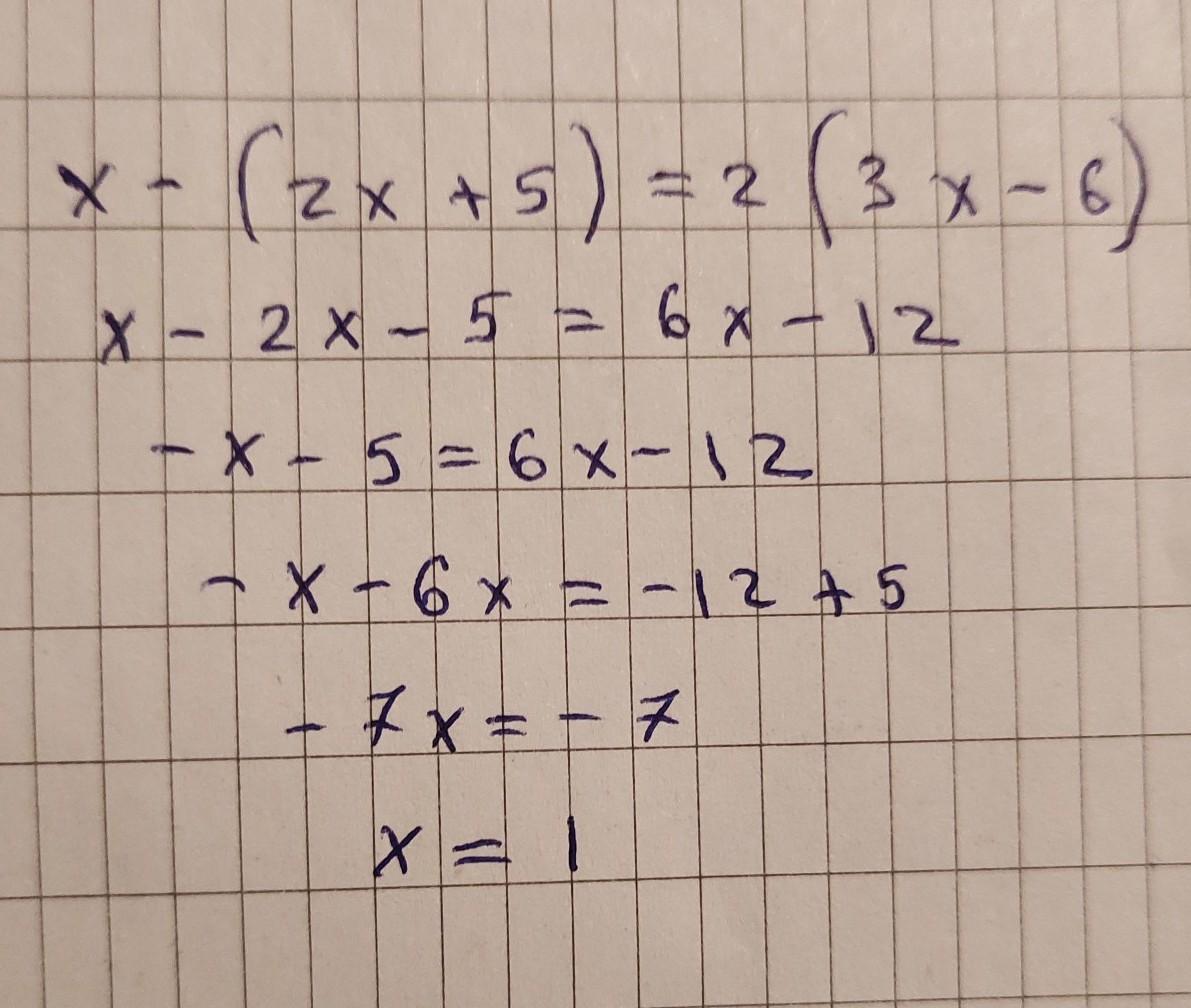 x - (2x + 5) = 2(3x - 6)
x - 2x - 5 = 6x - 12
- x - 5 = 6x - 12
- x - 6x = -12 + 5
- 7x = - 7
x = 1